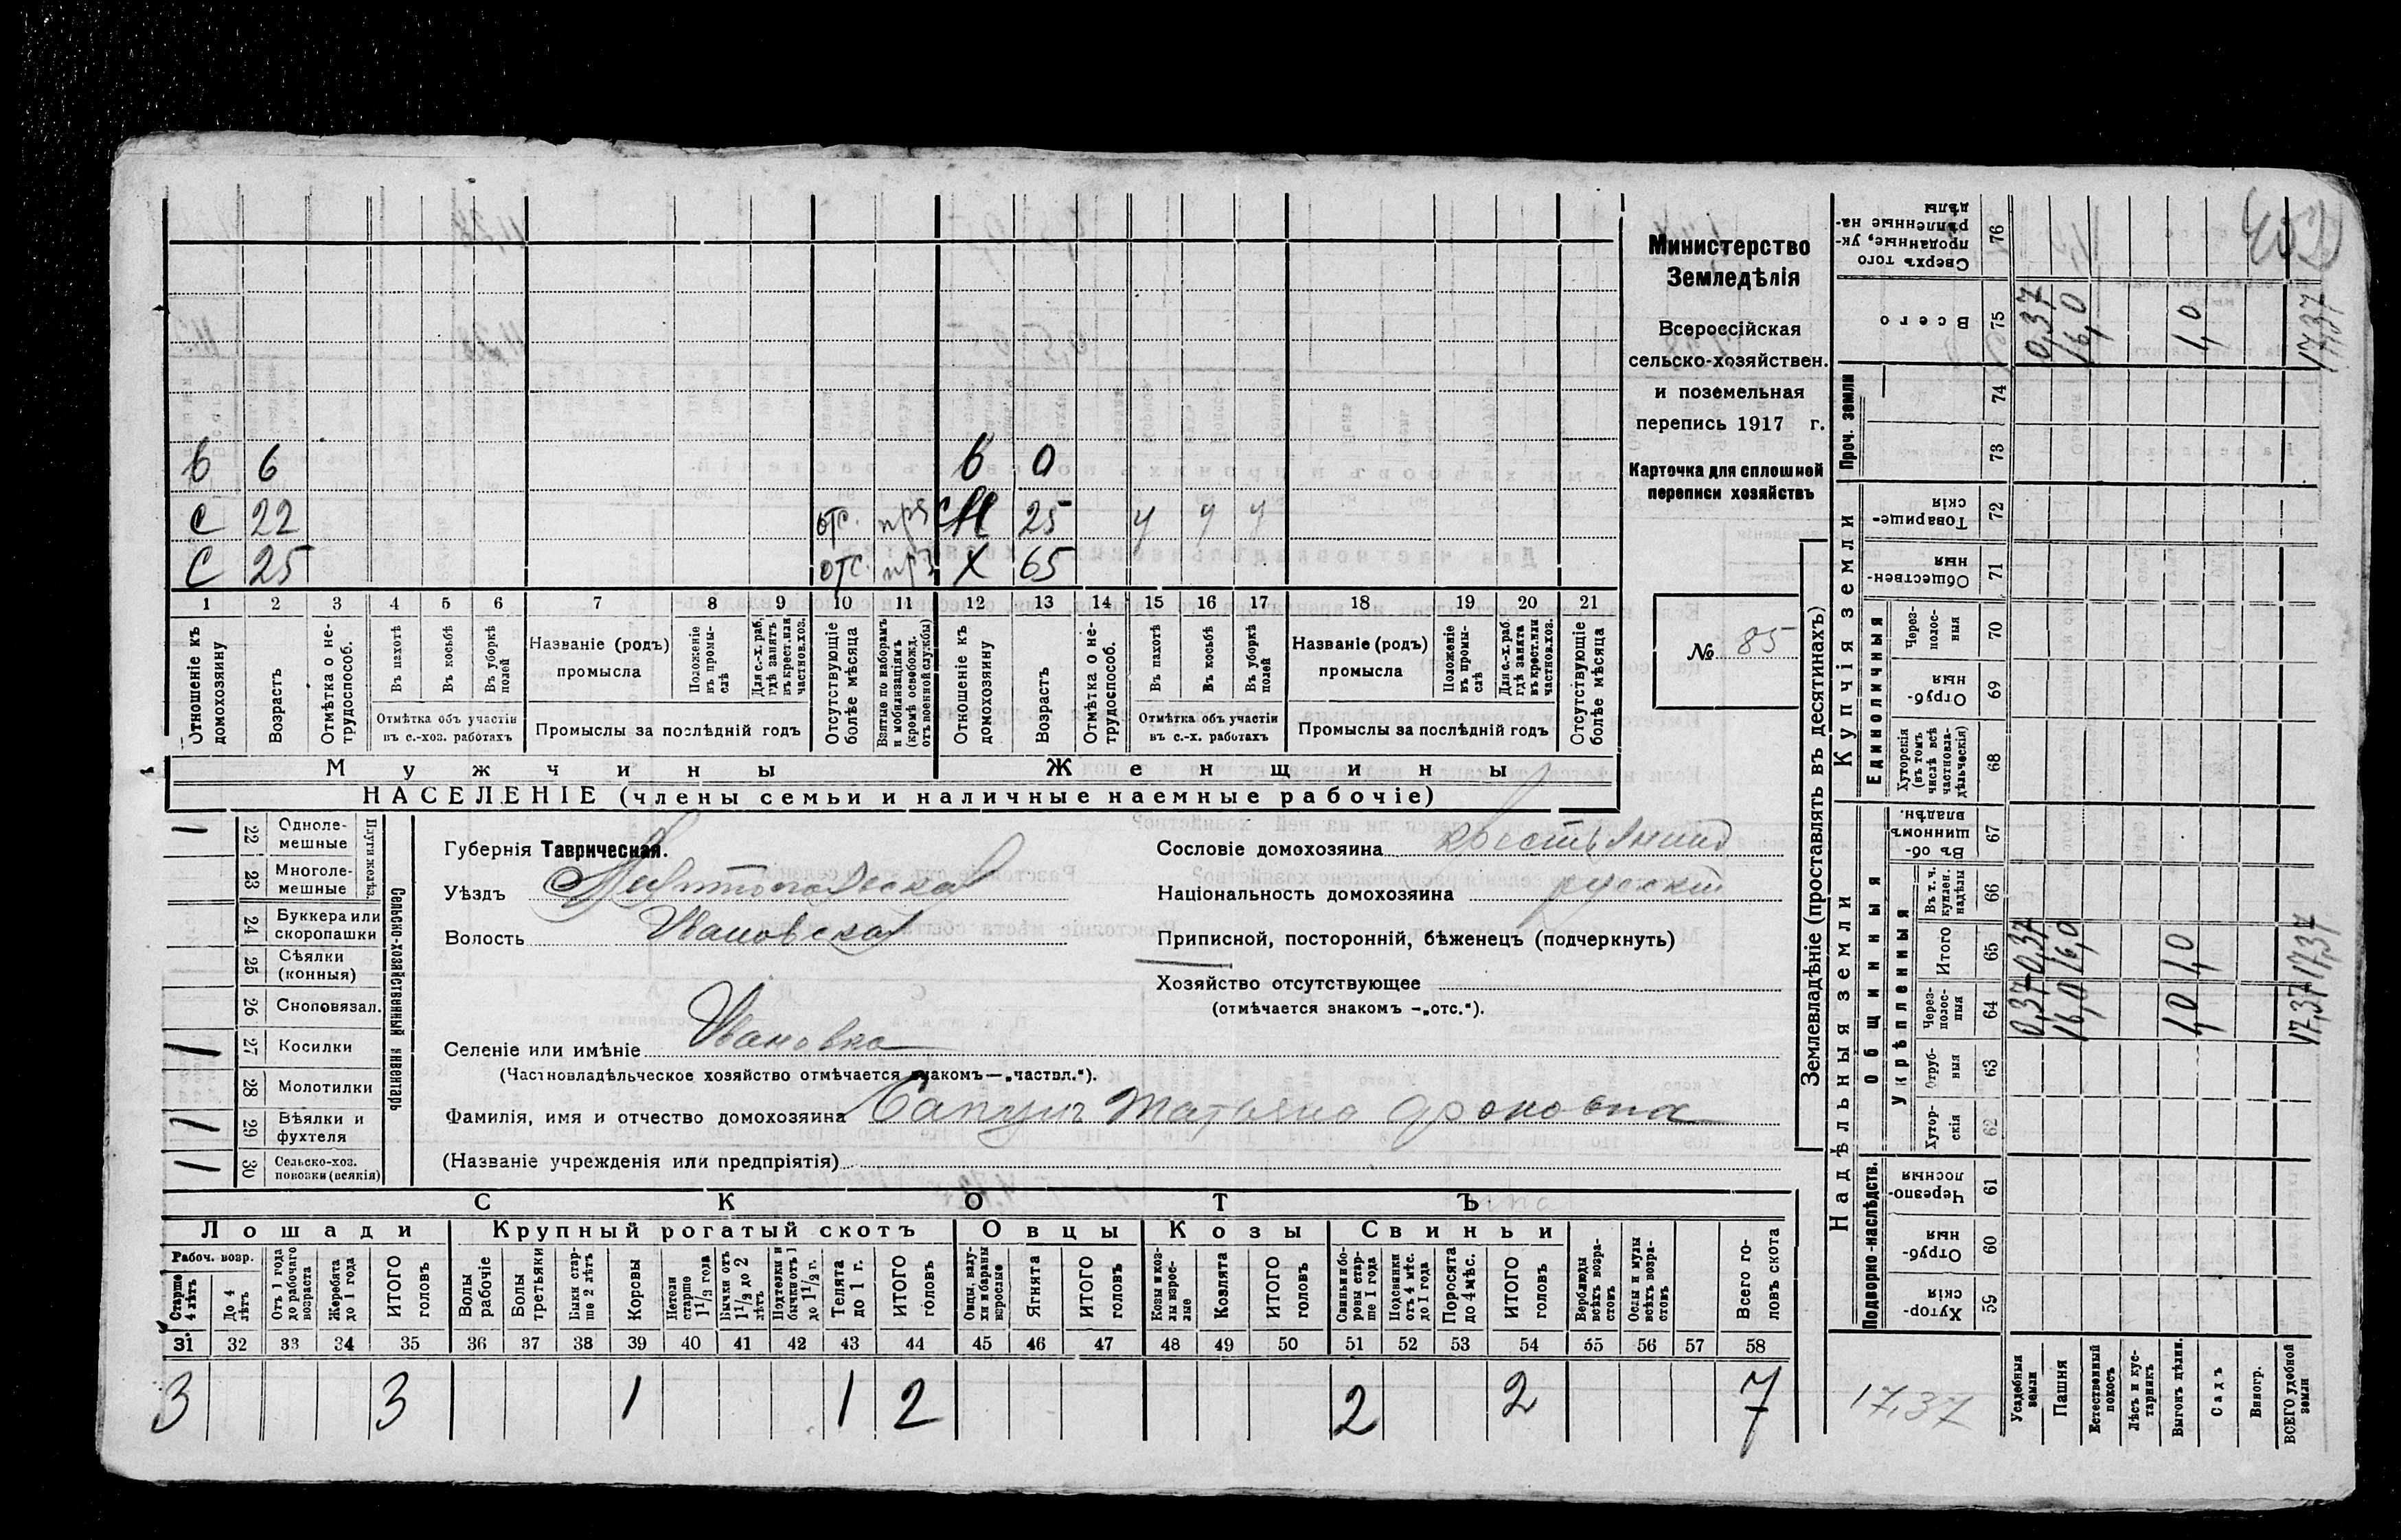 Министерство
Земледѣлія
Всероссійская
сельско-хозяйствен.
и поземельная
перепись 1917 г.
Карточка для сплошной
переписи хозяйствъ
№ 85
в 6 в 0
с 22 отс. 25 у у у
с 25 отс. Х 65
1 2 3 4 5 6 7 8 9 10 11 12 13 14 15 16 17 18 19 20 21
Отношеніе къ домохозяину
Возрастъ
Отмѣтка о не-трудоспособ.
Въ пахотѣ
Въ косьбѣ
Въ уборкѣ полей
Отмѣтка объ участіи
въ с.-хоз. работахъ
Названіе (родъ)
промысла
Положеніе въ промы-слѣ
Для с.-х. раб. гдѣ занятъ въ крест. или частнов. хоз.
Промыслы за послѣдній годъ
Отсутствующіе болѣе мѣсяца
Взятые по наборамъ и мобилизаціямъ (кромѣ освобожд. отъ военной службы)
Отношеніе къ домохозяину
Возрастъ
Отмѣтка о не-трудоспособ.
Въ пахотѣ
Въ косьбѣ
Въ уборкѣ полей
Отмѣтка объ участіи
въ с.-х. работахъ
Названіе (родъ)
промысла
Положеніе въ промы-слѣ
Для с.-х. раб. гдѣ занята въ крест. или частнов. хоз.
Промыслы за послѣдній годъ
Отсутствующіе болѣе мѣсяца
Мужчины Женщины
НАСЕЛЕНІЕ (члены семьи и наличные наемные рабочіе)
1 22 Одноле-мешные
23 Многоле-мешные
Плуги желѣз.
24 Буккера или скоропашки
25 Сѣялки (конныя)
26 Сноповязал.
1 27 Косилки
28 Молотилки
1 29 Вѣялки и фухтеля
1 30 Сельско-хоз. повозки (всякія)
Сельско-хозяйственный инвентарь
Губернія Таврическая.
Уѣздъ Мелитопольскай
Волость Ивановскай
Селеніе или имѣніе Ивановка
(Частновладѣльческое хозяйство отмѣчается знакомъ—„частвл.“).
Фамилія, имя и отчество домохозяина Сапуг Татьяна
(Названіе учрежденія или предпріятія)
Сословіе домохозяина
Національность домохозяина рускій
Приписной, посторонній, бѣженецъ (подчеркнуть)
Хозяйство отсутствующее
(отмѣчается знакомъ —„отс.“).
СКОТЪ
Лошади Крупный рогатый скотъ Овцы Козы Свиньи
Рабоч. возр.
Старше 4 лѣтъ
До 4 лѣтъ
Отъ 1 года до рабочаго возраста
Жеребята до 1 года
ИТОГО головъ
Волы рабочіе
Волы третьяки
Быки стар-ше 2 лѣтъ
Коровы
Нетели старше 1½ года
Бычки отъ 1½ до 2 лѣтъ
Подтелки и бычки отъ 1 до 1½ г.
Телята до 1 г.
ИТОГО головъ
Овцы, валу-хи и бараны взрослые
Ягнята
ИТОГО головъ
Козы и коз-лы взрос-лые
Козлята
ИТОГО головъ
Свиньи и бо-ровы стар-ше 1 года
Подсвинки отъ 4 мѣс. до 1 года
Поросята до 4 мѣс.
ИТОГО головъ
Верблюды всѣхъ возра-стовъ
Ослы и мулы всѣхъ возра-стовъ
Всего го-ловъ скота
31 32 33 34 35 36 37 38 39 40 41 42 43 44 45 46 47 48 49 50 51 52 53 54 55 56 57 58
3 3 1 1 2 2 2 7
Землевладѣніе (проставлять въ десятинахъ)
Надѣльныя земли
Купчія земли
Проч. земли
Подворно-наслѣдств.
Общинныя
Укрѣпленныя
Единоличныя
Хутор-скія 59
Отруб-ныя 60
Черезпо-лосныя 61
Хутор-скія 62
Отруб-ныя 63
Через-полос-ныя 64
Итого 65
Въ т. ч. куплен. надѣлы 66
Въ об-щинномъ владѣн. 67
Хуторскія (въ томъ числѣ всѣ частновла-дѣльческія) 68
Отруб-ныя 69
Через-полос-ныя 70
Обществен-ныя 71
Товарище-скія 72
73
74
Всего 75
Сверхъ того проданные, ук-рѣпленные на-дѣлы 76
Усадебныя земли 0,37 0,37 0,37
Пашня 16,0 16,0 16,0
Естественный покосъ
Лѣсъ и кус-тарникъ
Выгонъ цѣлин. 1,0 1,0 1,0
Садъ
Виногр.
ВСЕГО удобной земли 17,37 17,37 17,37
17,37